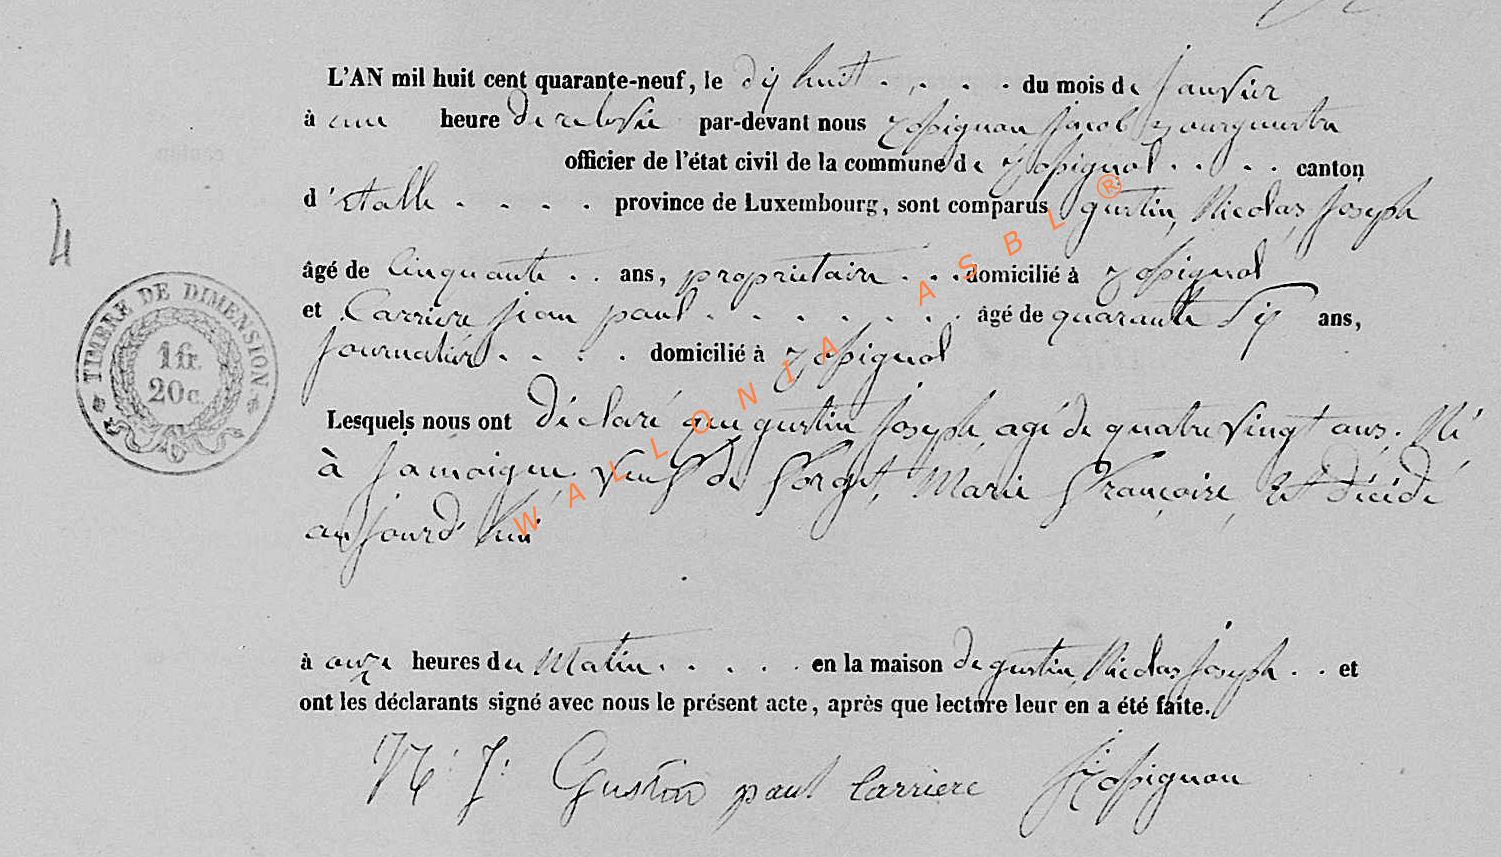 L'AN mil huit cent quarante-neuf, le dix huit . . . . du mois de janvier
à une heure de relevée par-devant nous jacob Bourgumestre
officier de l'état civil de la commune de Rossignol . . . . canton
d'Etalle . . . . province de Luxembourg, sont comparus gustin, Nicolas, Joseph
4
âgé de Cinquante . . ans, propriétaire . . . domicilié à Rossignol
et Carriere jean paul . . . . . . . âgé de quarante Six ans,
journalier . . . . domicilié à Rossignol
TIMBRE DE DIMENSION.
1 fr.
20 c.
Lesquels nous ont déclaré que gustin Joseph, agé de quatre vingt ans. Né
à Jamoigne veuf de Forget, Marie Françoise, Est décédé
aujourd'hui
à onze heures du Matin . . . . . en la maison de gustin, Nicolas Joseph . . et
ont les déclarants signé avec nous le présent acte, après que lecture leur en a été faite.
N: J: Gustin paul Carriere
WALLONIA ASBL®